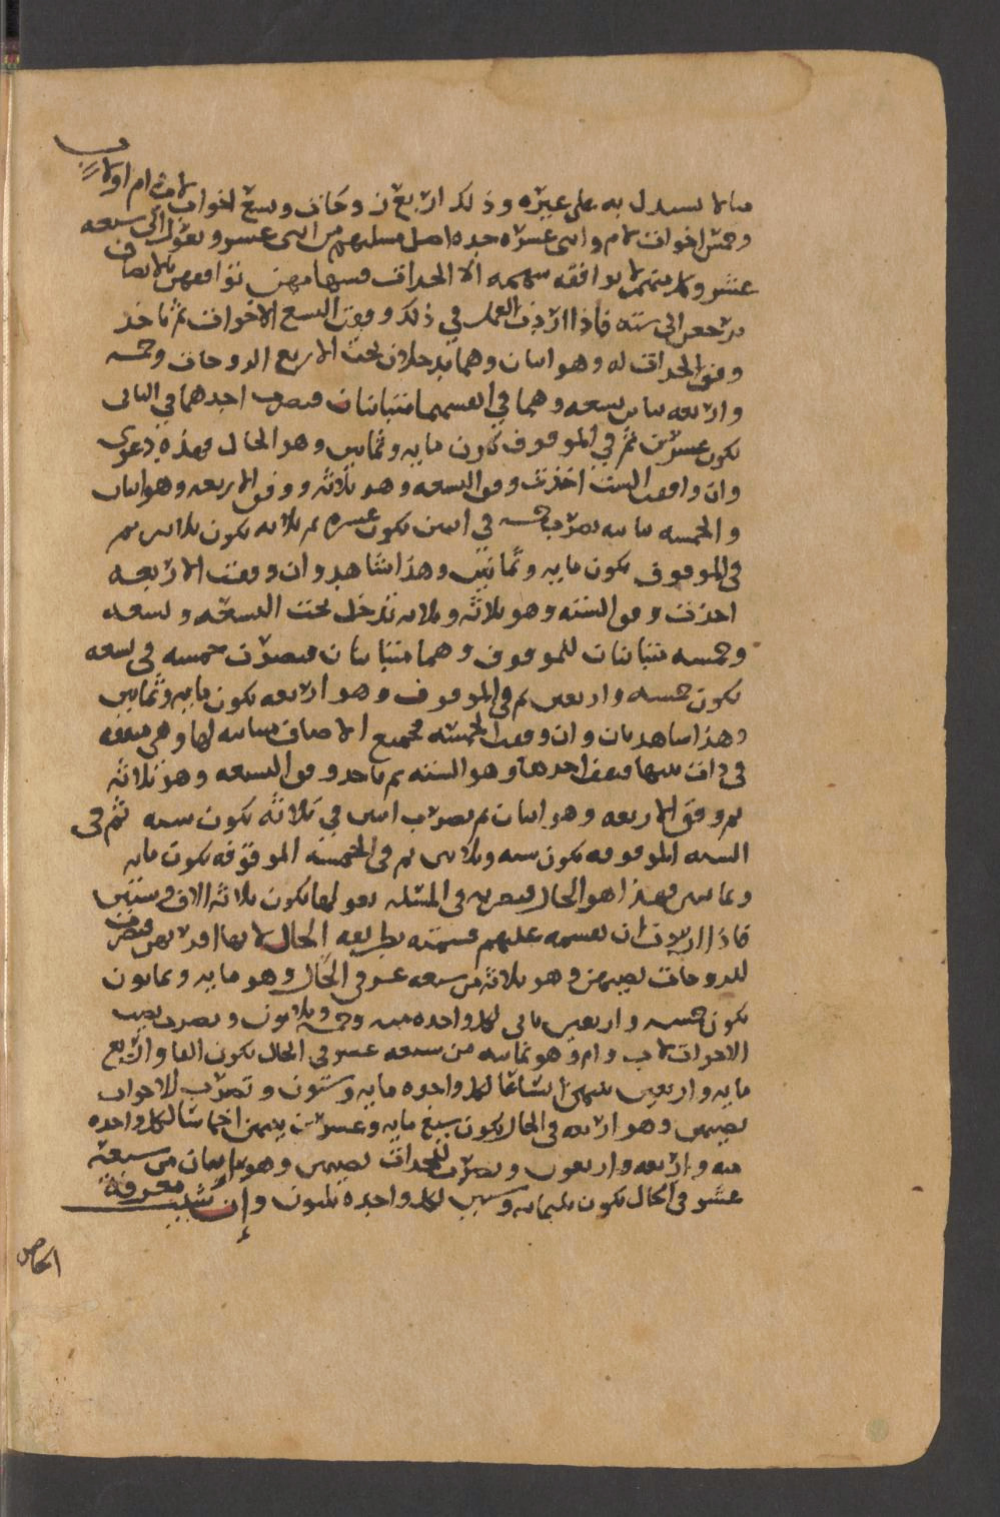 مثالا يستدل به على غيره وذلك اربع زوجات وتسع اخوات لاب وام او لاب
وخمس اخوات لام واثنى عشره جده اصل مسئلتهم من اثنى عشر وتعول الى سبعه
عشر وكل منهن لا يوافقه سهمه الا الجدات فسهامهن توافقهن بالانصاف
فترجعن الى سته فاذا اردت العمل في ذلك وقفت التسع الاخوات ثم تاخذ
وفق الجدات له وهو اثنان وهما يدخلان تحت الاربع الزوجات وخمسه
واربعه تباين تسعه وهما في انفسهما متباينان فتضرب احدهما في الثاني
يكون عشرين ثم في الموقوف يكون مايه وثمانين وهو الحال فهذه دعوى
وان وقفت الست اخذت وفق التسعه وهو ثلاثه ووفق الاربعه وهو اثنان
والخمسه مباينه تضرب خمسه في اثنين يكون عشره ثم ثلاثه يكون ثلاثين ثم
في الموقوف يكون مايه وثمانين وهذا شاهد وان وقفت الاربعه
اخذت وفق السته وهو ثلاثه وثلاثه تدخل تحت التسعه وتسعه
وخمسه متباينان للموقوف وهما متباينان فتضرب خمسه في تسعه
يكون خمسه واربعين ثم في الموقوف وهو اربعه يكون مايه وثمانين
وهذا شاهد ثان وان وقفت الخمسه فجميع الاصناف مباينه لها وهي متفقه
في ذات بينها فتقف احدها وهو السته ثم تاخذ وفق التسعه وهو ثلاثه
ثم وفق الاربعه وهو اثنان ثم تضرب اثنين في ثلاثه يكون سته ثم في
السته الموقوفه يكون سته وثلاثين ثم في الخمسه الموقوفه يكون مايه
وثمانين فهذا هو الحال فتضربه في المسئله بعولها يكون ثلاثه الاف وستين
فاذا اردت ان تقسمه عليهم قسمته بطريقه الحال لانها اقربهن فتضرب
للزوجات نصيبهن وهو ثلاثه من سبعه عشر في الحال وهو مايه وثمانون
يكون خمسمايه واربعين ياتي لكل واحده ميه وخمسه وثلاثون وتضرب نصيب
الاخوات لاب وام وهو ثمانيه من سبعه عشر في الحال يكون الفا واربع
مايه واربعين بينهن اتساعا لكل واحده مايه وستون وتضرب للاخوات
نصيبهن وهو اربعه في الحال يكون سبع مايه وعشرين بينهن اخماسا لكل واحده
ميه واربعه واربعون وتضرب للجدات نصيبهن وهو اثنان من سبعه
عشر في الحال يكون ثلثمايه وستين لكل واحده ثلثون وإن شئت معرفة
الحاصل